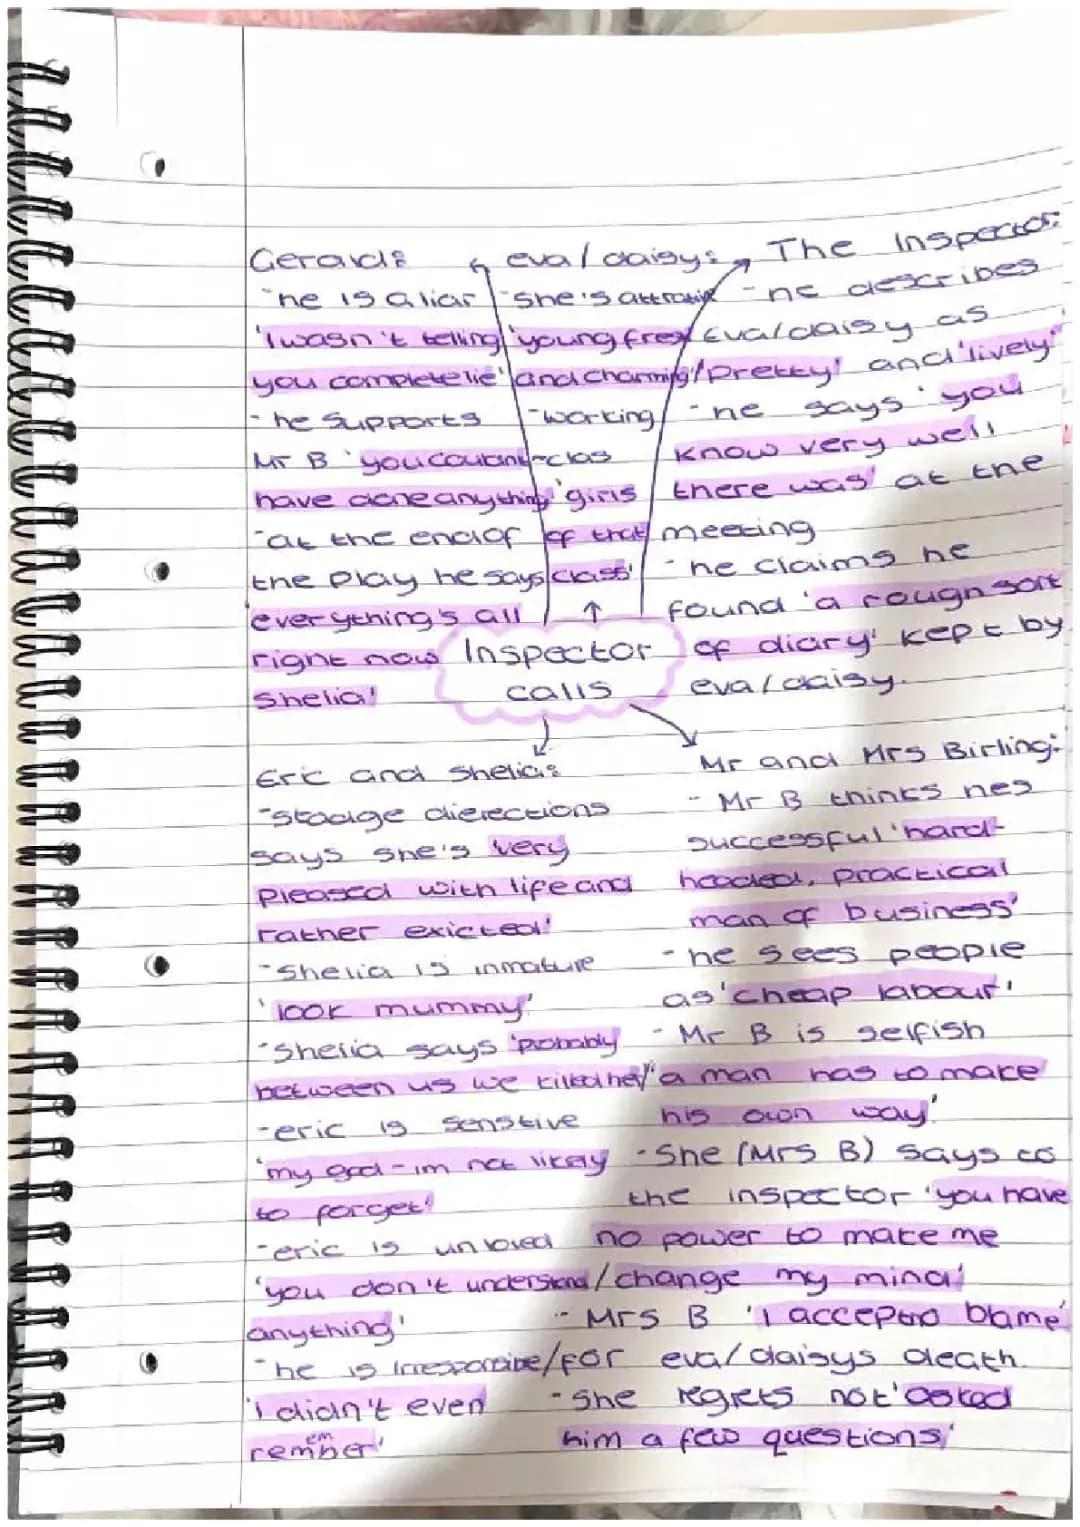 Gerald:
-he is a liar
'I wasn't telling
you complete lie'
- he supports
Mr B 'you couldn't
have done anything'
-at the end of
the play he says
'everything's all
right now
Shelia'
eva/daisy:
-she's attractive
'young fresh
and charming'
-working
-clas
'girls
of that
class'
The Inspector:
-he describes
Eva/daisy as
'pretty' and 'lively'
-he says 'you
know very well
there was' at the
meeting
-he claims he
found 'a rough sort
of diary' kept by
eva/daisy.
Inspector
calls
Eric and Shelia:
-staage dierections
says she's 'very
pleased with life and
rather exicted'
-Shelia is inmature
'look mummy'
-Shelia says 'probably
between us we killed her'
-eric is senstive
'my god-im not likely
to forget'
-eric is unloved
'you don't understand
anything'
-he is irresponsible
'i didn't even
remember'
Mr and Mrs Birling:
- Mr B thinks hes
successful 'hard-
headed, practical
man of business'
-he sees people
as 'cheap labour'
- Mr B is selfish
'a man has to make
his own way'
-She (Mrs B) says to
the inspector 'you have
no power to make me
change my mind'
-Mrs B 'i accept no blame'
for eva/daisys death.
-She regrets not 'asked
him a few questions'